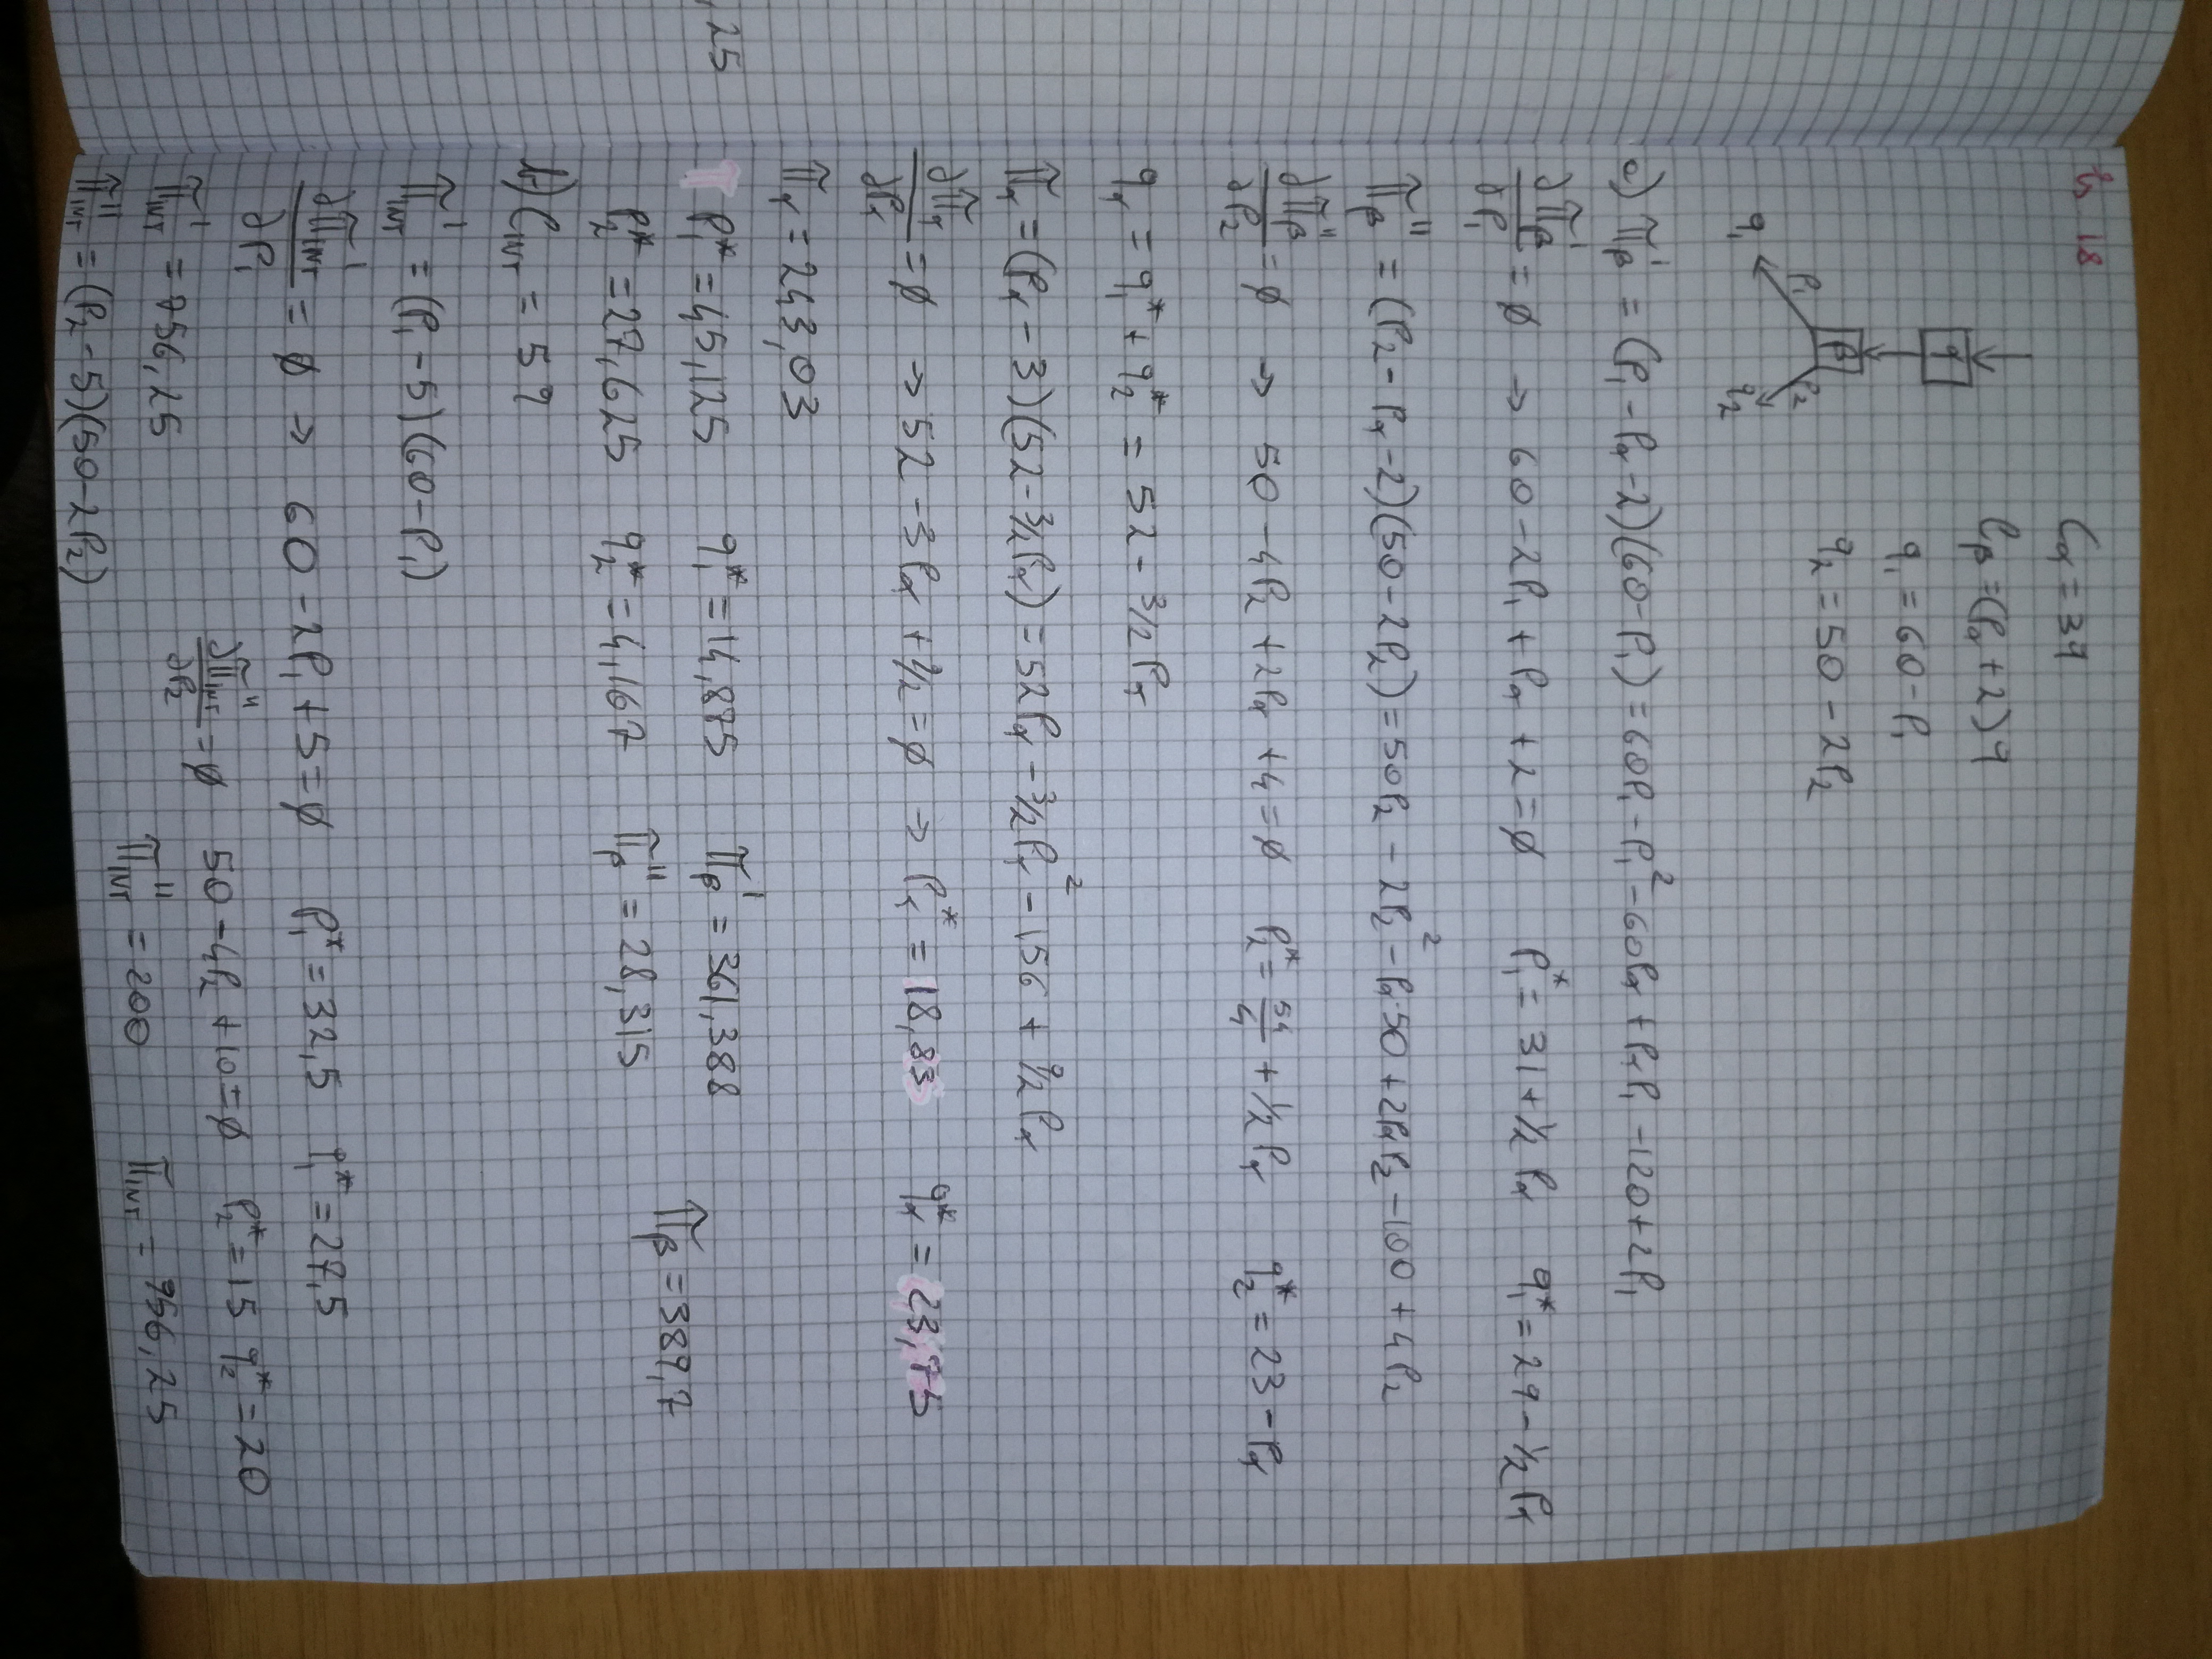 Es 18
Cα = 3q
Cβ = (Pα + 2)q
q₁ = 60 - P₁
q₂ = 50 - 2P₂
α
β
P₁ P₂
q₁ q₂
a) Πβ' = (P₁ - Pα - 2)(60 - P₁) = 60P₁ - P₁² - 60Pα + PαP₁ - 120 + 2P₁
∂Πβ'/∂P₁ = ∅ → 60 - 2P₁ + Pα + 2 = ∅ P₁* = 31 + 1/2 Pα q₁* = 29 - 1/2 Pα
Πβ'' = (P₂ - Pα - 2)(50 - 2P₂) = 50P₂ - 2P₂² - Pα·50 + 2PαP₂ - 100 + 4P₂
∂Πβ''/∂P₂ = ∅ → 50 - 4P₂ + 2Pα + 4 = ∅ P₂* = 54/4 + 1/2 Pα q₂* = 23 - Pα
qα = q₁* + q₂* = 52 - 3/2 Pα
Πα = (Pα - 3)(52 - 3/2 Pα) = 52Pα - 3/2 Pα² - 156 + 9/2 Pα
∂Πα/∂Pα = ∅ → 52 - 3Pα + 9/2 = ∅ → Pα* = 18,83 qα* = 23,75
Πα = 243,03
,25
P₁* = 45,125 q₁* = 14,875 Πβ' = 361,388
Πβ = 389,7
P₂* = 27,625 q₂* = 4,167 Πβ'' = 28,315
b) C_INT = 5q
Π_INT' = (P₁ - 5)(60 - P₁)
∂Π_INT'/∂P₁ = ∅ → 60 - 2P₁ + 5 = ∅ P₁* = 32,5 q₁* = 27,5
∂Π_INT''/∂P₂ = ∅ 50 - 4P₂ + 10 = ∅ P₂* = 15 q₂* = 20
Π_INT' = 756,25
Π_INT'' = 200 Π_INT = 956,25
Π_INT'' = (P₂ - 5)(50 - 2P₂)